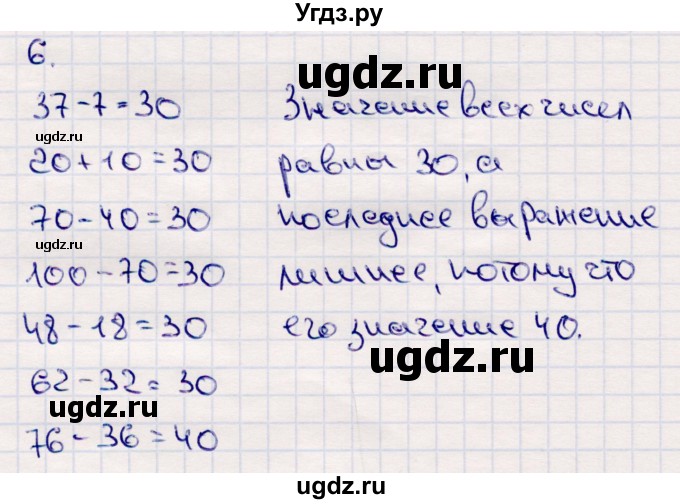 Угдз.ру
6.
37-7=30
20+10=30
70-40=30
100-70=30
48-18=30
62-32=30
76-36=40
Значение всех чисел
равны 30, а
последнее выражение
лишнее, потому что
его значение 40.
ugdz.ru
ugdz.ru
ugdz.ru
ugdz.ru
ugdz.ru
ugdz.ru
ugdz.ru
ugdz.ru